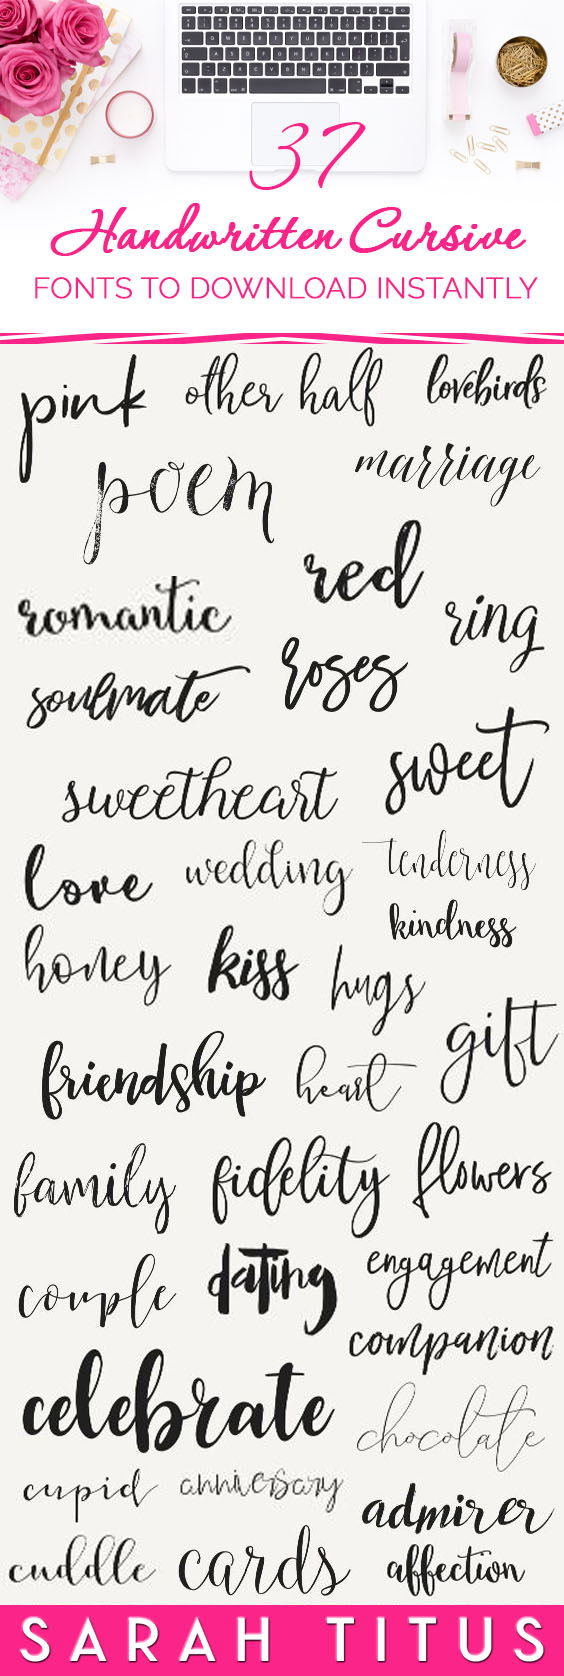 37
Handwritten Cursive
FONTS TO DOWNLOAD INSTANTLY
pink other half lovebirds
poem marriage
red
romantic ring
roses
soulmate
sweet
sweetheart
love wedding tenderness
kindness
honey kiss hugs
gift
friendship heart
family fidelity flowers
couple dating engagement
companion
celebrate
chocolate
cupid anniversary
admirer
cuddle cards affection
SARAH TITUS